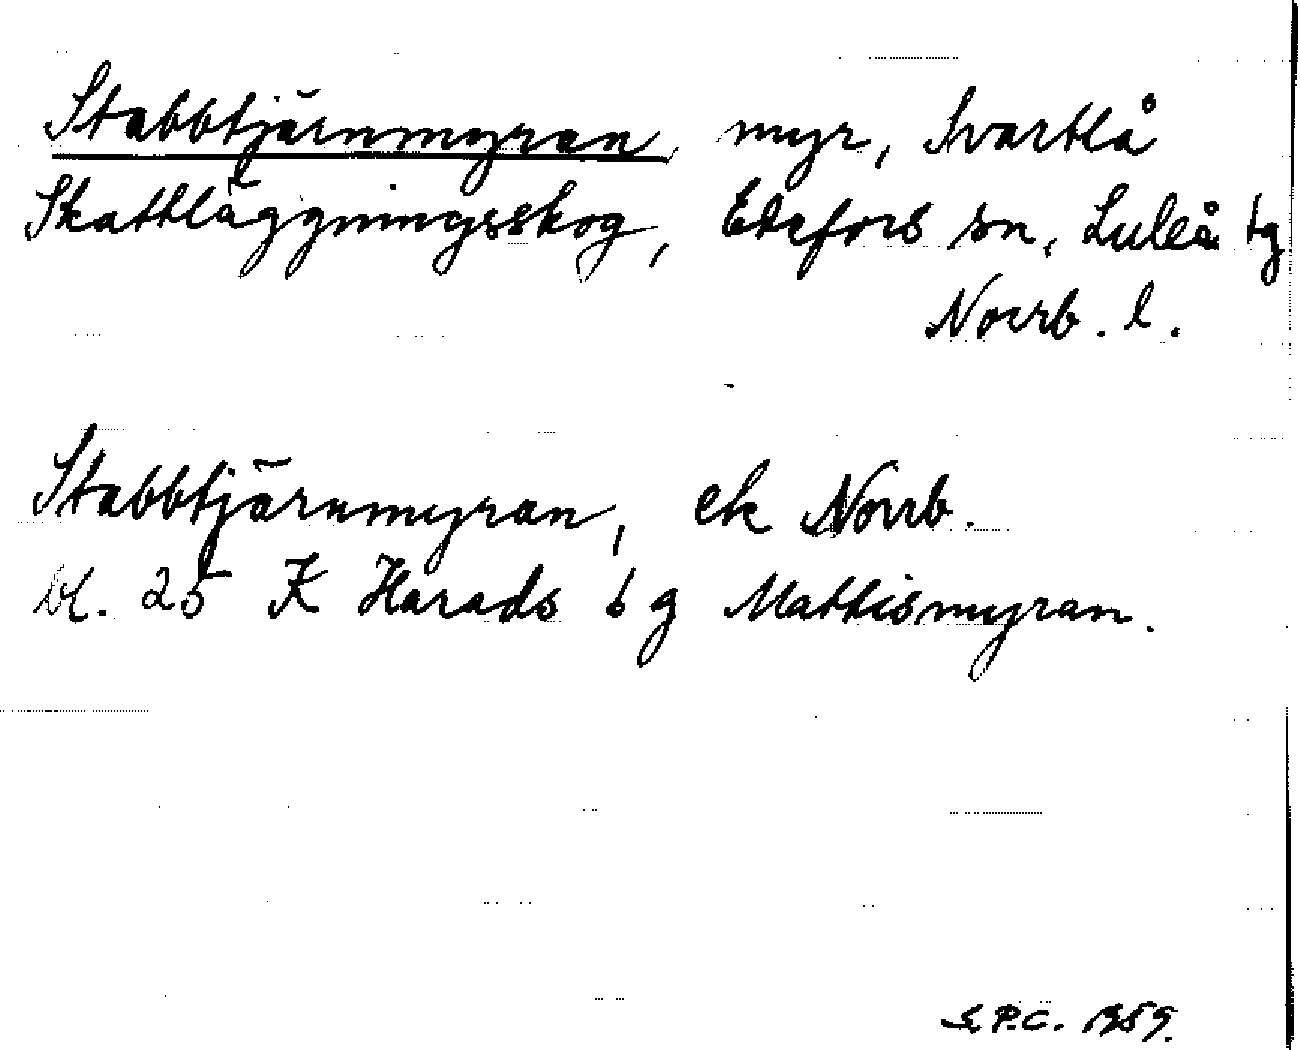 Stabbtjärnmyran, myr, Svartlå
Skattläggningsskog, Edefors sn, Luleå tg
Norrb. l.
Stabbtjärnmyran, ek Norrb.
bl. 25 K Harads s g Mattismyran.
S.P.C. 1959.